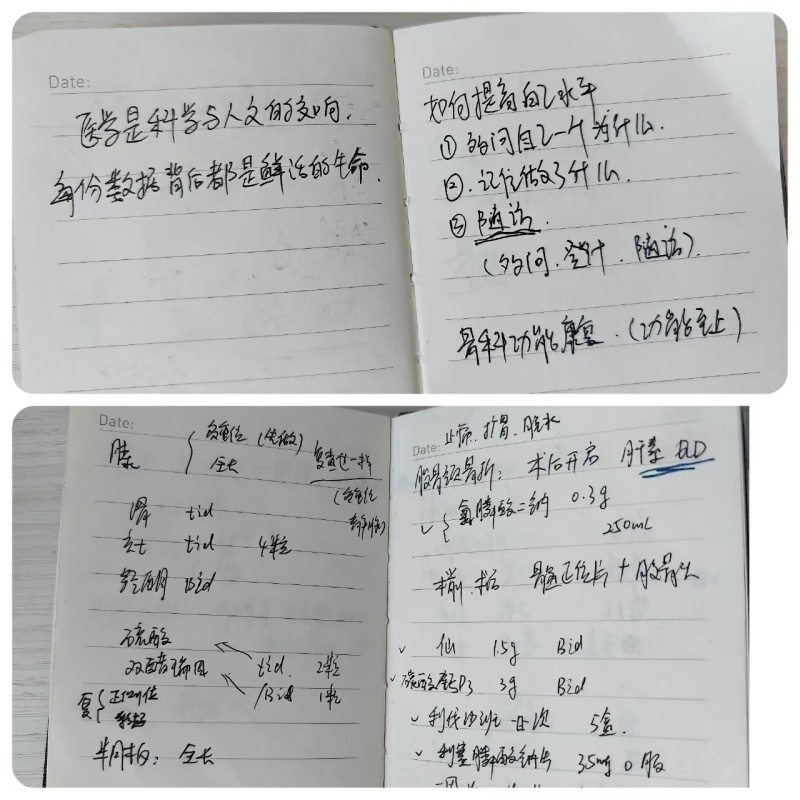 Date:
医学是科学与人文的交响.
每份数据背后都是鲜活的生命.
Date:
如何提高自己水平
① 多问自己一个为什么.
②. 记住做了什么.
③ 随访.
(多问. 总计. 随访).
骨科功能康复. (功能至上)
Date:
膝
负重位 (先做)
全长
复查也一样
(负重位
tid
tid 4粒
Bid
硫酸
双醋瑞因 tid. 2粒
/Bid 1粒
复 正侧位
半月板: 全长
止痛. 扩冒. 脱水
Date:
股骨颈骨折: 术后开启 肝素 BLD
氯膦酸二钠 0.3g
250mL
术前. 术后 骨盆正位片 + 股骨头
仙 1.5g Bid
碳酸钙D3 3g Bid
利伐沙班 一日一次 5盒.
利塞膦酸钠片 35mg 口服
一周